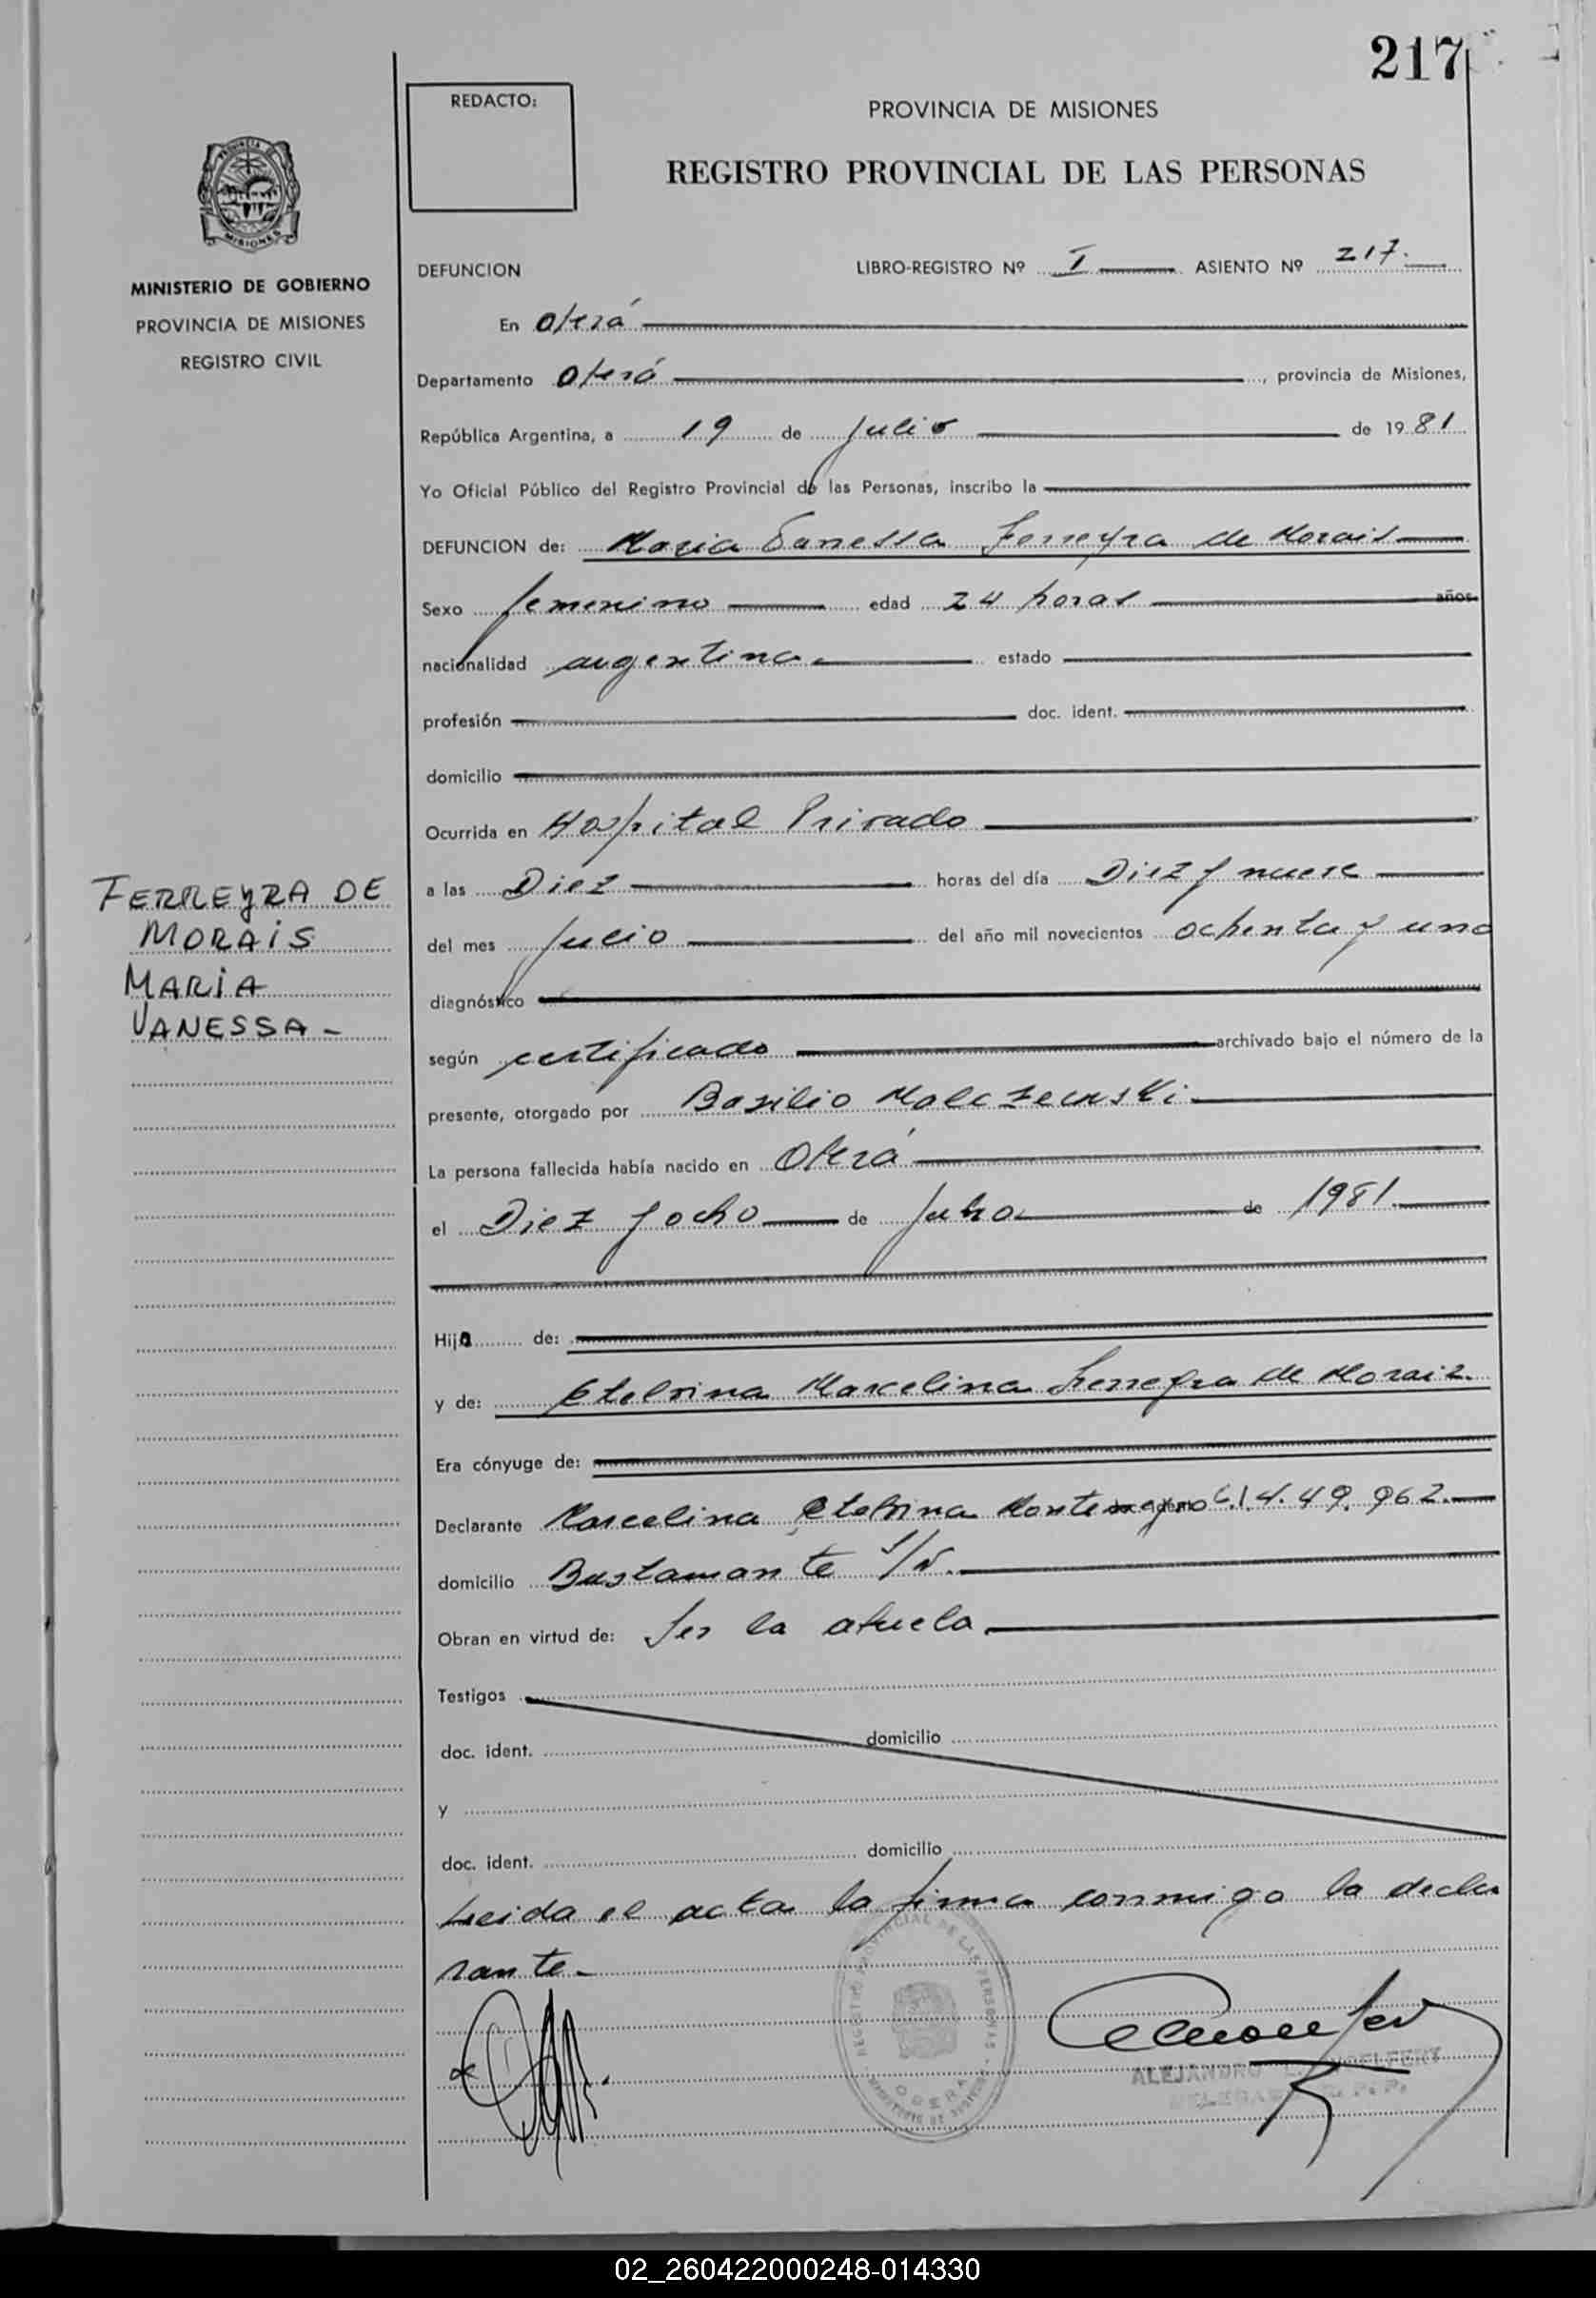 217
REDACTO:
PROVINCIA DE MISIONES
REGISTRO PROVINCIAL DE LAS PERSONAS
PROVINCIA DE
MISIONES
MINISTERIO DE GOBIERNO
PROVINCIA DE MISIONES
REGISTRO CIVIL
DEFUNCION LIBRO-REGISTRO Nº I ASIENTO Nº 217.
En Oberá
Departamento Oberá, provincia de Misiones,
República Argentina, a 19 de Julio de 1981
Yo Oficial Público del Registro Provincial de las Personas, inscribo la
DEFUNCION de: Maria Vanessa Ferreyra de Morais
Sexo femenino edad 24 horas años
nacionalidad argentina estado
profesión doc. ident.
domicilio
Ocurrida en Hospital Privado
a las Diez horas del día Diez y nueve
del mes Julio del año mil novecientos ochenta y uno
diagnóstico
según certificado archivado bajo el número de la
presente, otorgado por Basilio Malczewski
La persona fallecida había nacido en Oberá
el Diez y ocho de Julio de 1981.
Hija de:
y de: Etelvina Marcelina Ferreyra de Morais.
Era cónyuge de:
Declarante Marcelina Etelvina 14.49.962.
domicilio Bustamante S/N.
Obran en virtud de: Ser la abuela
Testigos
doc. ident. domicilio
y
doc. ident. domicilio
Leida el acta la firma conmigo la decla
rante.
FERREYRA DE
MORAIS
MARIA
VANESSA-
REGISTRO PROVINCIAL DE LAS PERSONAS
OBERA
ALEJANDRO
02_260422000248-014330